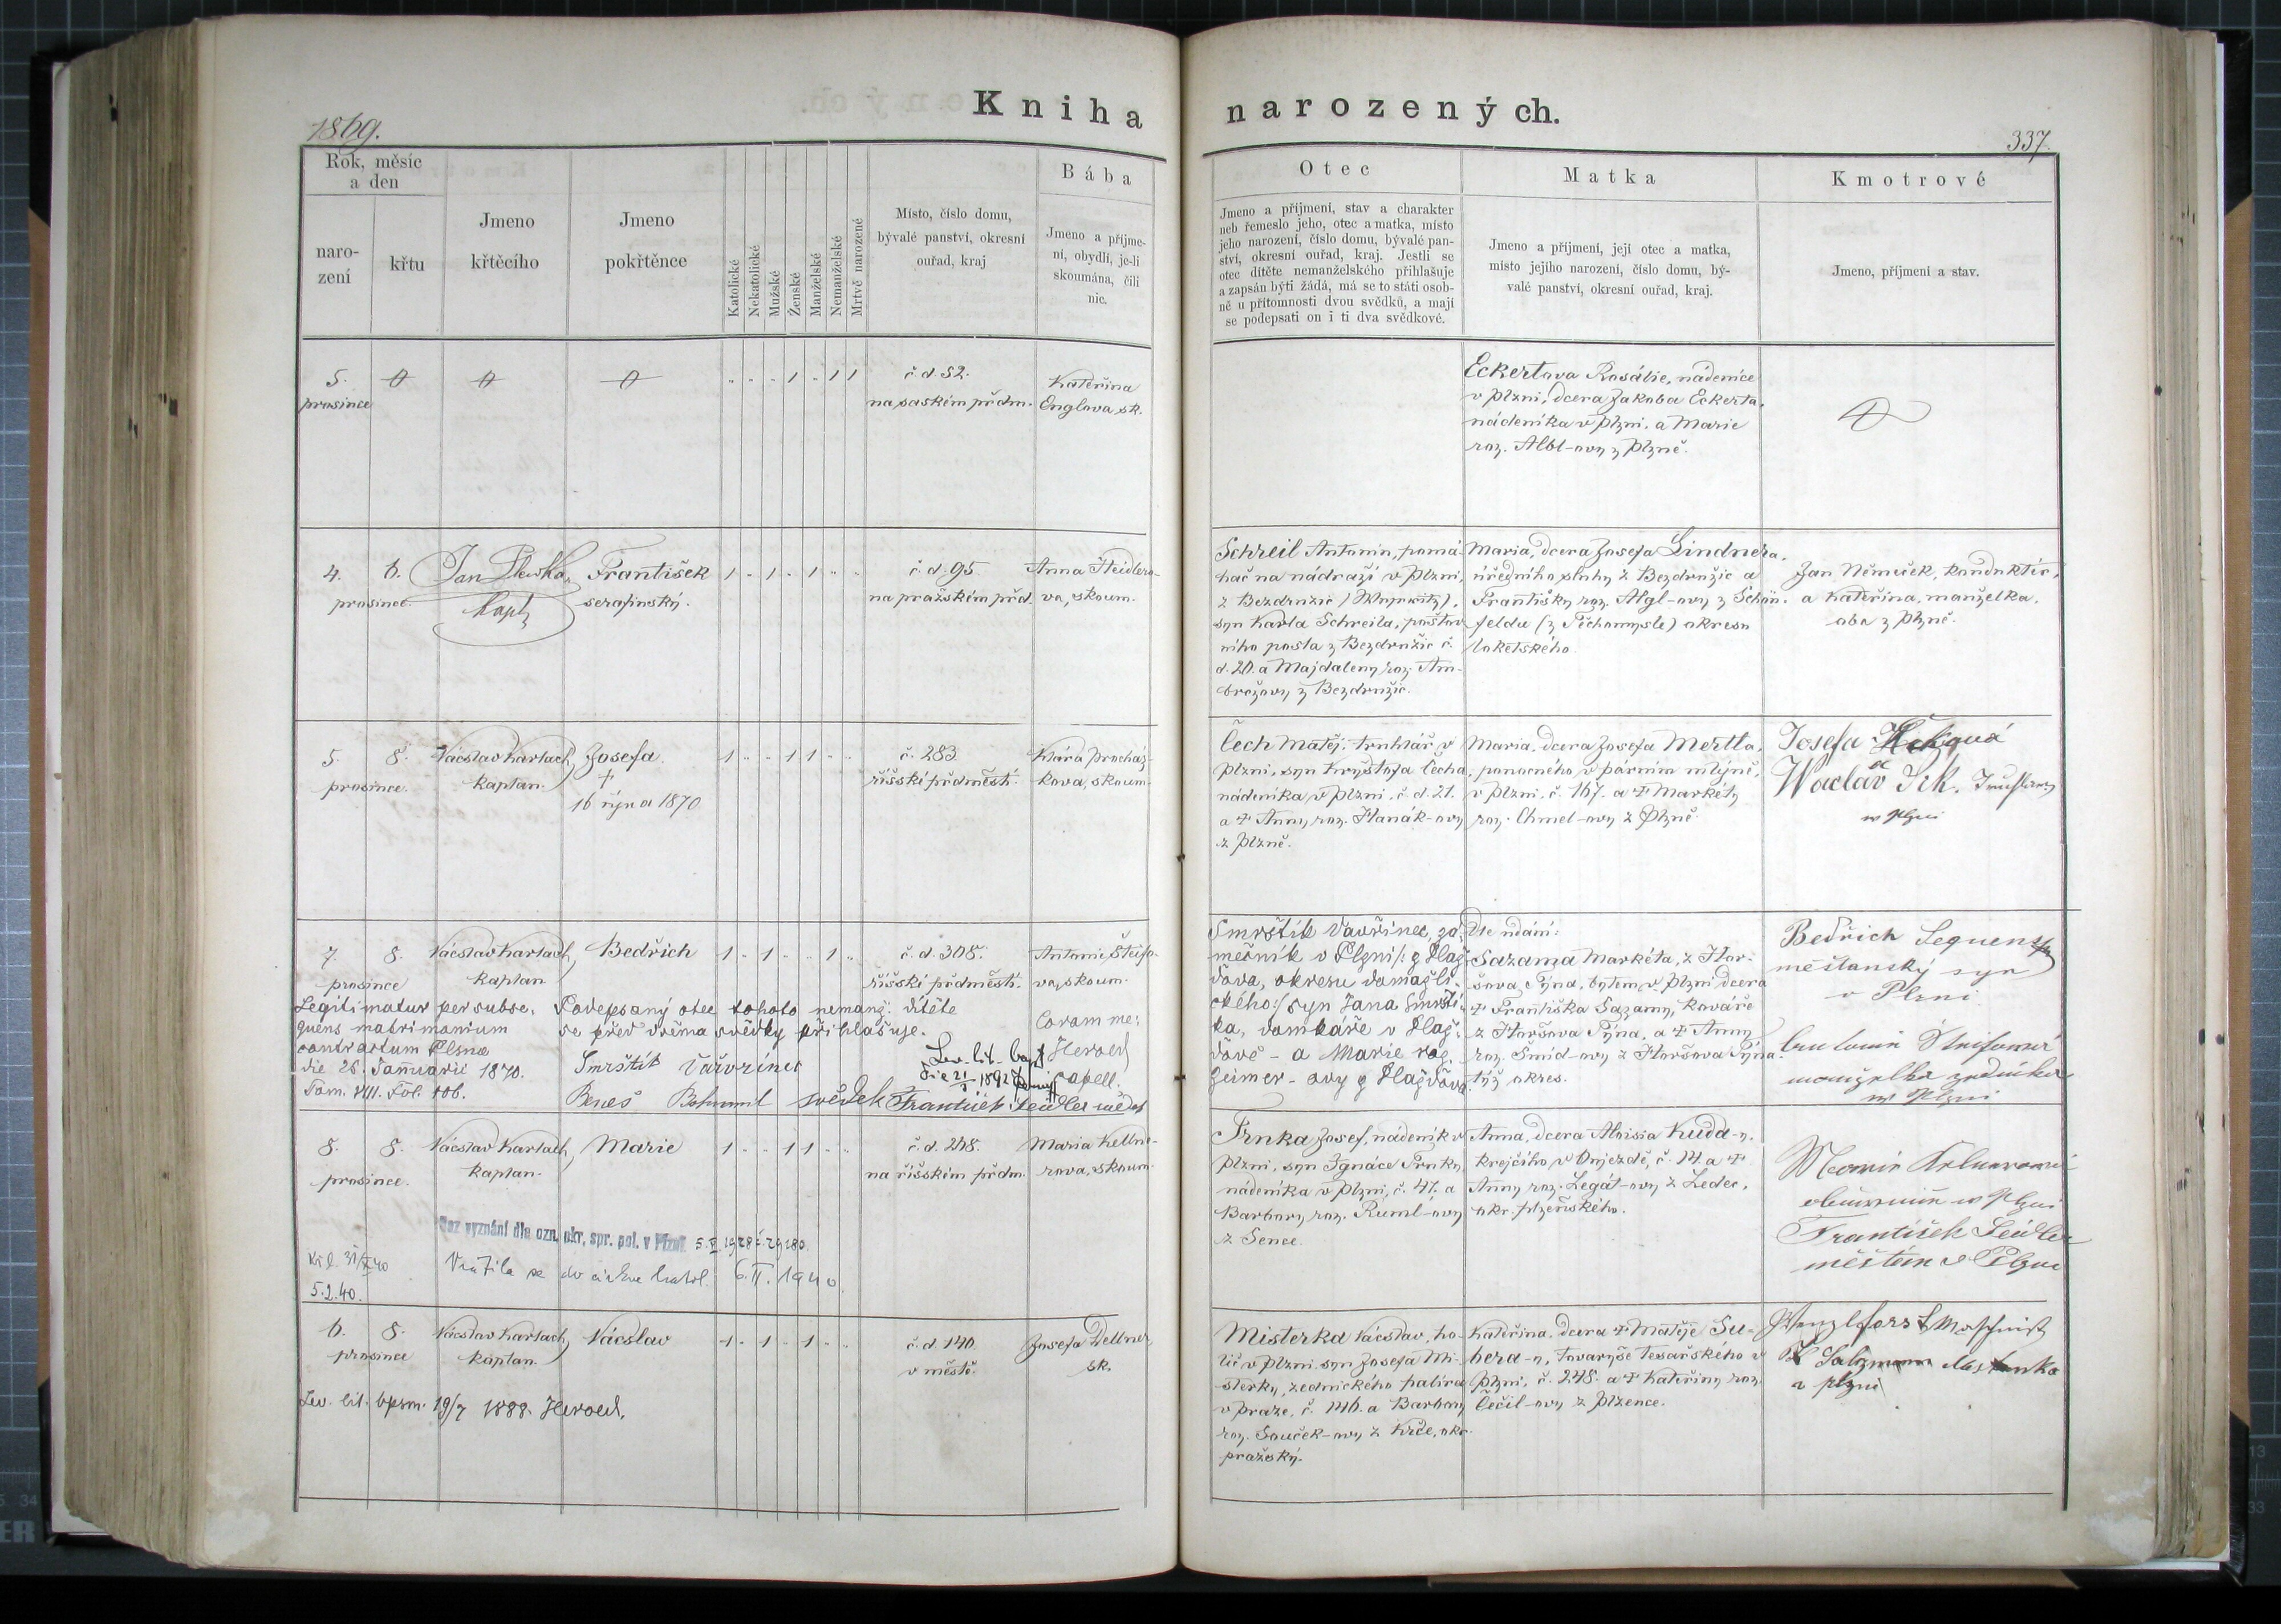 Kniha narozených.
1869.
337.
Rok, měsíc
a den
naro-
zení
křtu
Jmeno
křtěcího
Jmeno
pokřtěnce
Katolické
Nekatolické
Mužské
Ženské
Manželské
Nemanželské
Mrtvě narozené
Místo, číslo domu,
bývalé panství, okresní
ouřad, kraj
Bába
Jmeno a příjme-
ní, obydlí, je-li
skoumána, čili
nic.
Otec
Jmeno a příjmení, stav a charakter
neb řemeslo jeho, otec a matka, místo
jeho narození, číslo domu, bývalé pan-
ství, okresní ouřad, kraj. Jestli se
otec dítěte nemanželského přihlašuje
a zapsán býti žádá, má se to státi osob-
ně u přítomnosti dvou svědků, a mají
se podepsati on i ti dva svědkové.
Matka
Jmeno a příjmení, její otec a matka,
místo jejího narození, číslo domu, bý-
valé panství, okresní ouřad, kraj.
Kmotrové
Jmeno, příjmení a stav.
5.
prosince
1 1 1
č. d. 52.
na saském předm.
Kateřina
Englova, sk.
Eckertova Rosálie, nádenice
v Plzni, dcera Jakoba Eckerta,
nádeníka v Plzni, a Marie
roz. Albl-ovy z Plzně.
4. 6.
prosince.
Jan
kapl
František
serafinský.
1 1 1
č. d. 95.
na pražském před.
Anna Šteidlero-
va, skoum.
Schreil Antonín, pomá-
hač na nádraží v Plzni,
z Bezdružic
syn Karla Schreila, poštov
ního posla z Bezdružic č.
d. 20. a Majdaleny roz. Am-
brožovy z Bezdružic.
Maria, dcera Josefa Lindnera,
úředního sluhy z Bezdružic a
Františky roz. Algl-ovy z Schön-
feldu (z Těchomysle) okresu
loketského.
Jan Němeček, konduktér,
a Kateřina, manželka,
oba z Plzně.
5. 8.
prosince.
Václav Karlach,
kaplan.
Josefa.
+
16 října 1870
1 1 1
č. 283.
říšské předměstí.
Klára Procház-
kova, skoum.
Čech Matěj, truhlář v
Plzni, syn Kryštofa Čecha,
nádeníka v Plzni, č. d. 21.
a + Anny, roz. Hanák-ovy
z Plzně.
Maria, dcera Josefa Mertla,
ponocného v párním mlýně,
v Plzni, č. 167. a + Markéty
roz. Chmel-ovy z Plzně.
Josefa
a
Waclav
w Plzni
7. 8.
prosince
Václav Karlach,
kaplan
Bedřich
1 1 1
č. d. 308.
říšské předměstí.
Antonie Šteifo-
va, skoum.
Legitimatur per subse-
quens matrimonium
contractum Plsnae
die 26. Januarii 1870.
Tom. VIII. Fol. 106.
Podepsaný otec tohoto nemanž. dítěte
se před dvěma svědky přihlašuje.
Smrštík Vavřinec
Beneš Bohumil svědek František Leidler svědek
Lev. lit. bapt.
die 21/1 1892
Coram me:
Herold
capell.
Smrštík Vavřinec, zá-
mečník v Plzni /: z Hlaž-
ďova, okresu domažli-
ckého :/ syn Jana Smrští-
ka, domkáře v Hlaž-
ďově - a Marie roz.
Zeimer-ovy z Hlažďova
Dle udání:
Sazama Markéta, z Hor-
šova Týna, bytem v Plzni dcera
+ Františka Sazamy, kováře
z Horšova Týna, a + Anny
roz. Šmíd-ovy z Horšova Týna
týž okres.
Bedřich Sequens
měštanský syn
v Plzni.
manželka zedníka
w Plzni
8. 8.
prosince.
Václav Karlach,
kaplan.
Marie
1 1 1
č. d. 248.
na říšském předm.
Maria Kellne-
rova, skoum.
Bez vyznání dle ozn. okr. spr. pol. v Plzni. 5. V. 1928 č. 29180.
31/I 40
5.2.40.
Vrátila se do církve katol. 6. II. 1940
Trnka Josef, nádeník v
Plzni, syn Ignáce Trnky,
nádeníka v Plzni, č. 47. a
Barbory roz. Ruml-ovy
z Sence.
Anna, dcera Aloisia Kuda-y,
krejčího v Dnjezdě, č. 14. a +
Anny roz. Legát-ovy z Ledec,
okr. plzeňského.
w Plzni
František Leidler
měštan v Plzni
6. 8.
prosince
Václav Karlach,
kaplan.
Václav
1 1 1
č. d. 140.
v městě.
Josefa Dellner,
sk.
Lev. lit. bpsm. 19/7 1888. Herold.
Misterka Václav, ho-
lič v Plzni, syn Josefa Mi-
sterky, zednického palíra
v Praze, č. 1146. a Barbory
roz. Souček-ovy z Krče, okr.
pražský.
Kateřina, dcera + Matěje Su-
bera-y, tovaryše tesařského v
Plzni, č. 248. a + Kateřiny roz.
Čečil-ovy z Plzence.
Salzmann
z Plzni